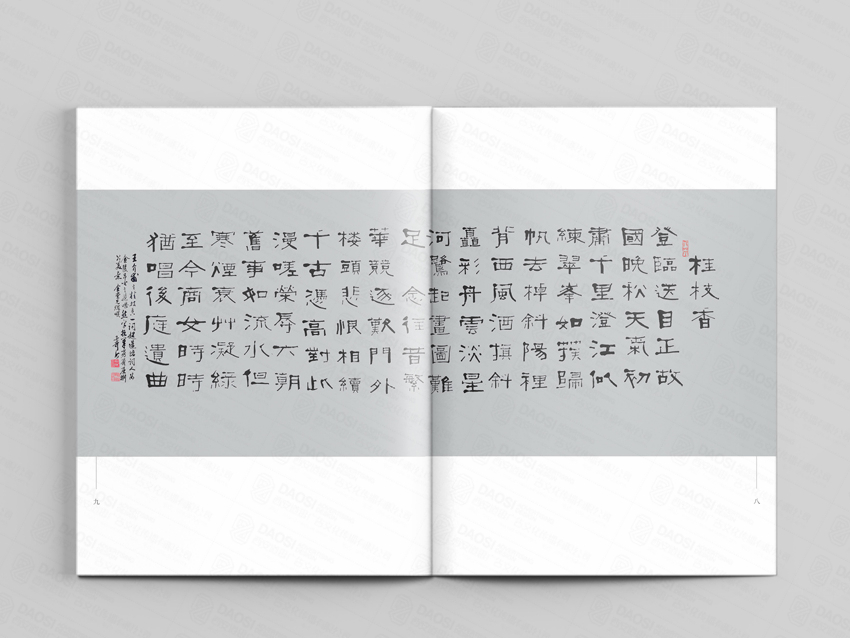 桂枝香
登臨送目正故
國晚秋天氣初
肅千里澄江似
練翠峯如簇歸
帆去棹斜陽裡
背西風酒旗斜
矗彩舟雲淡星
河鷺起畫圖難
足 念往昔繁
華競逐歎門外
楼頭悲恨相續
千古憑高對此
漫嗟榮辱六朝
舊事如流水但
寒煙衰艸凝綠
至今商女時時
猶唱後庭遺曲
八
九
DAOSI